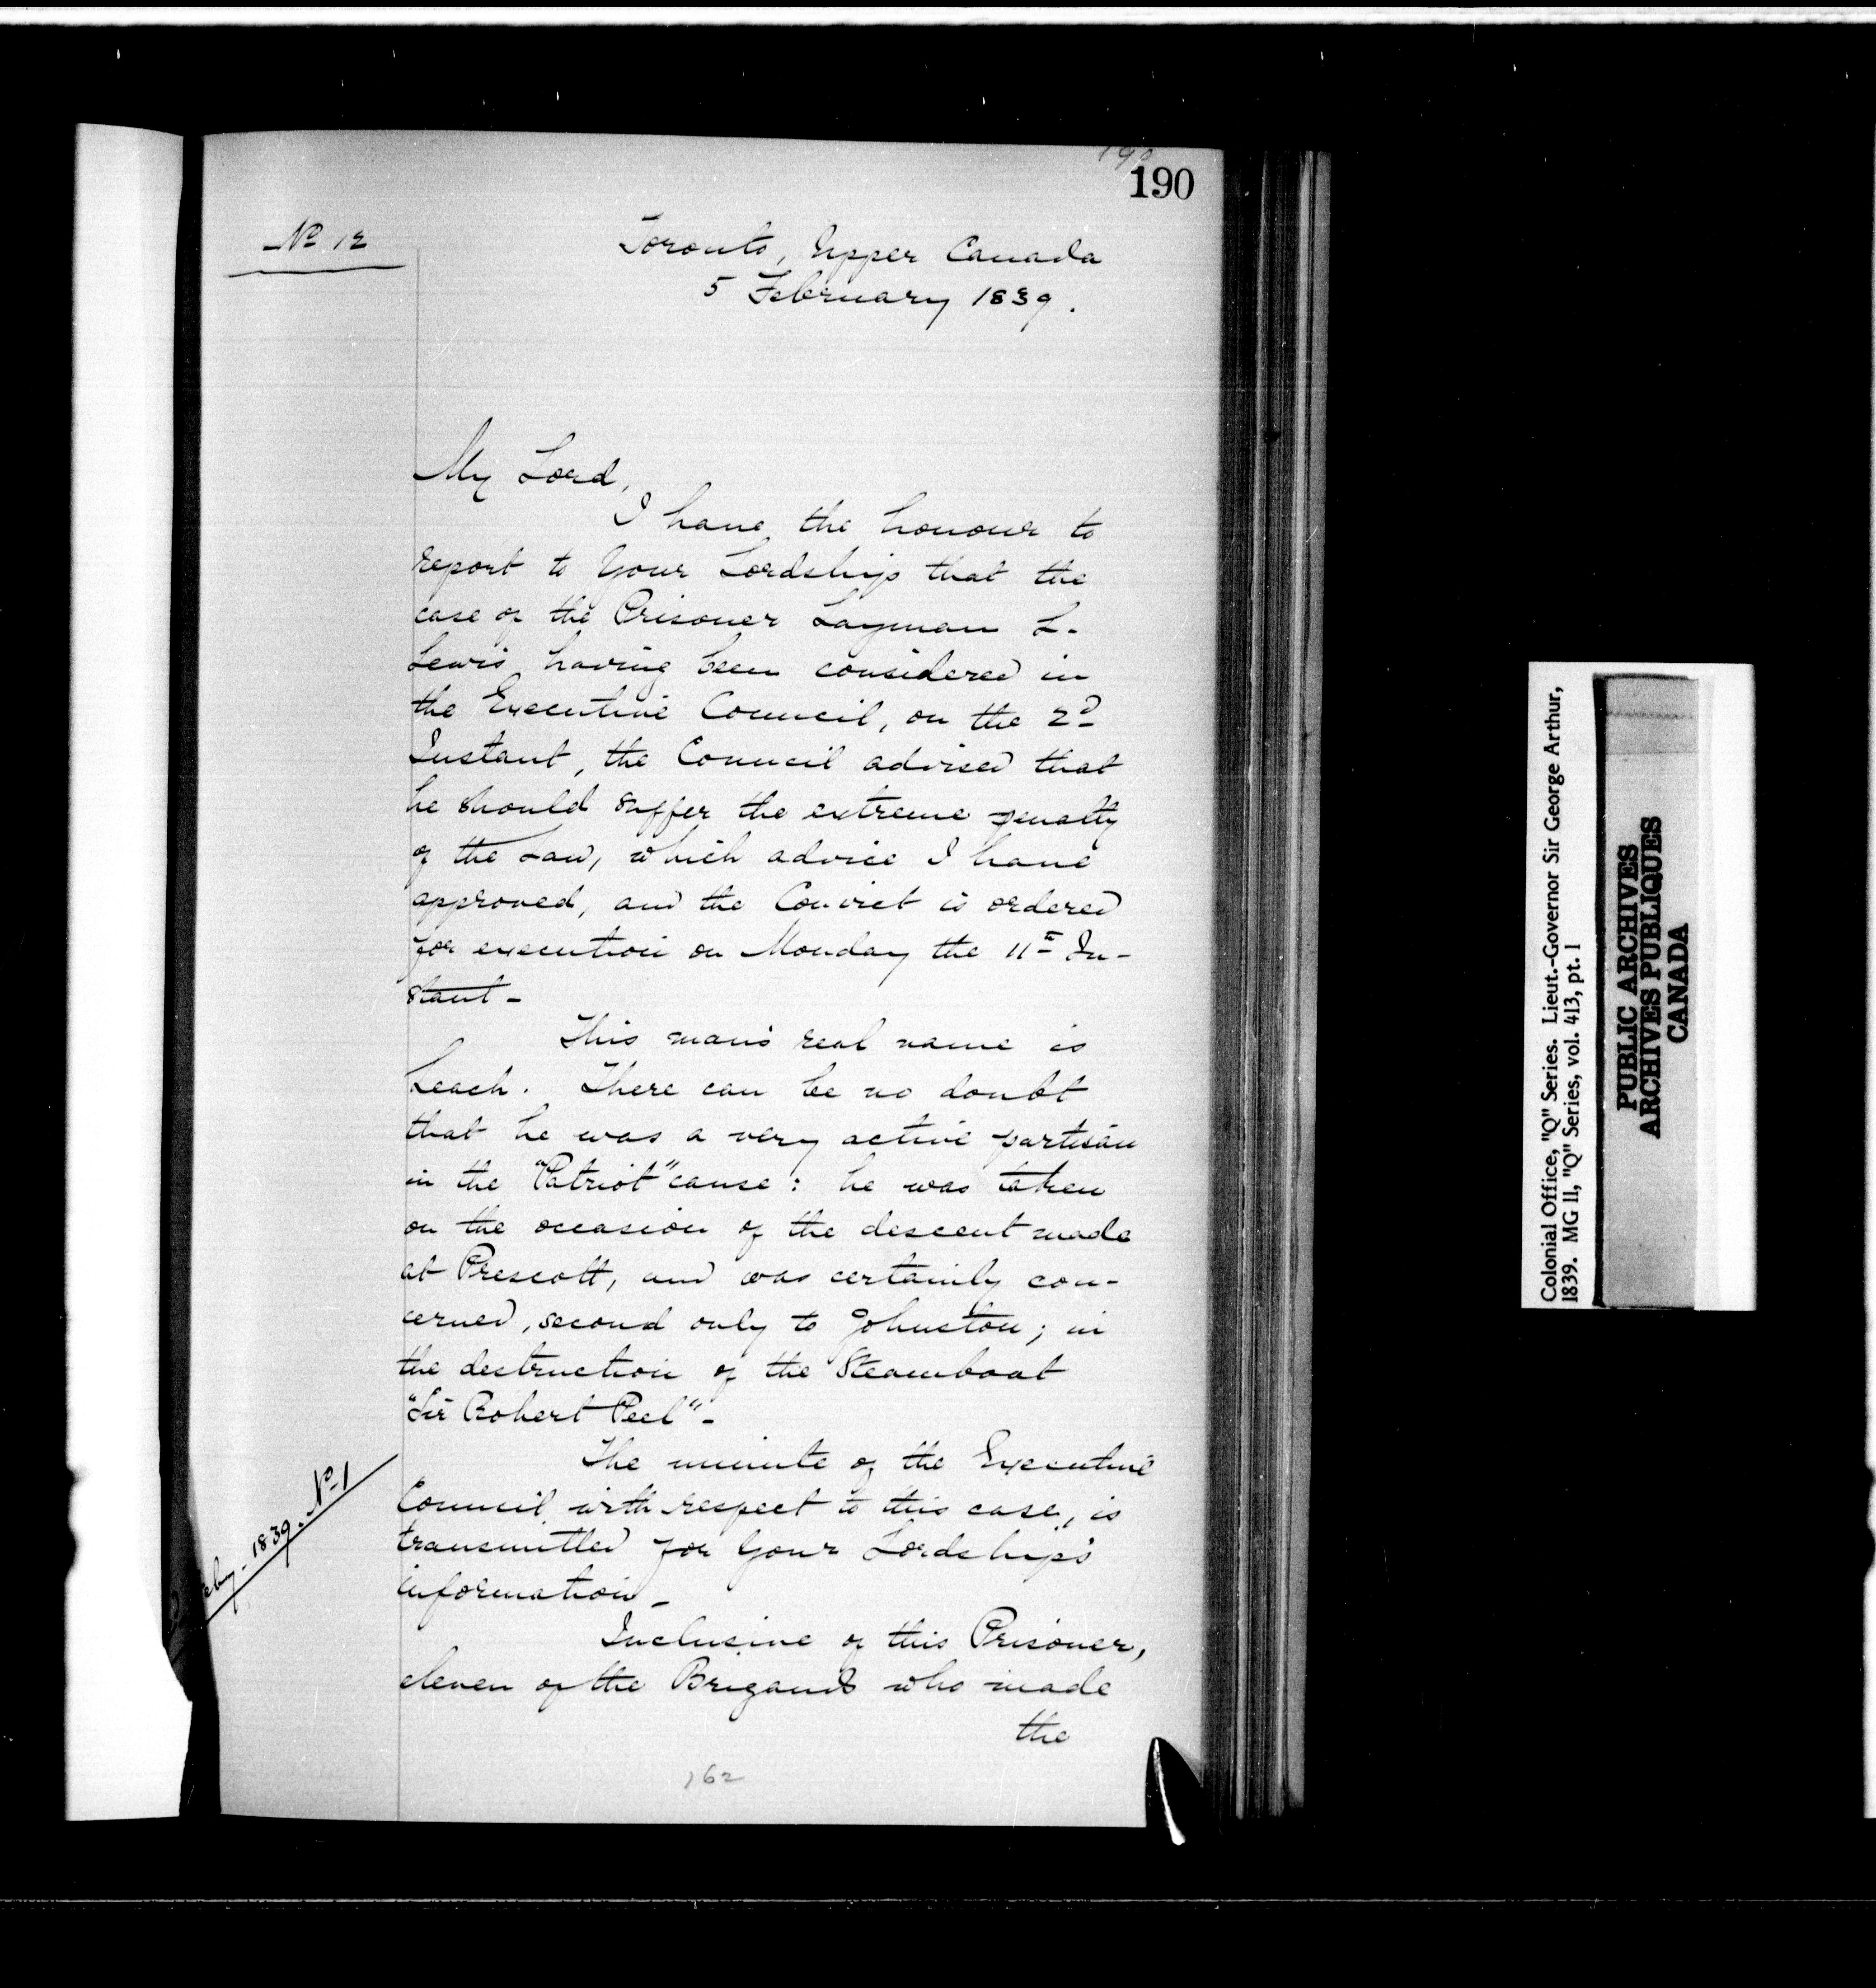 190
190
No 12
Toronto, Upper Canada
5 February 1839.
My Lord,
I have the honour to
report to Your Lordship that the
case of the Prisoner Layman L.
Lewis having been considered in
the Executive Council, on the 2d
Instant, the Council advised that
he should suffer the extreme penalty
of the Law, which advice I have
approved, and the Convict is ordered
for execution on Monday the 11th In-
stant -
This man's real name is
Leach. There can be no doubt
that he was a very active partisan
in the "Patriot" cause: he was taken
on the occasion of the descent made
at Prescott, and was certainly con-
cerned, second only to Johnston; in
the destruction of the Steamboat
"Sir Robert Peel" -
The minute of the Executive
Council with respect to this case, is
transmitted for Your Lordship's
information -
No 1
1839.
Inclusive of this Prisoner,
eleven of the Brigands who made
the
162
Colonial Office, "Q" Series. Lieut.-Governor Sir George Arthur,
1839. MG 11, "Q" Series, vol. 413, pt. 1
PUBLIC ARCHIVES
ARCHIVES PUBLIQUES
CANADA